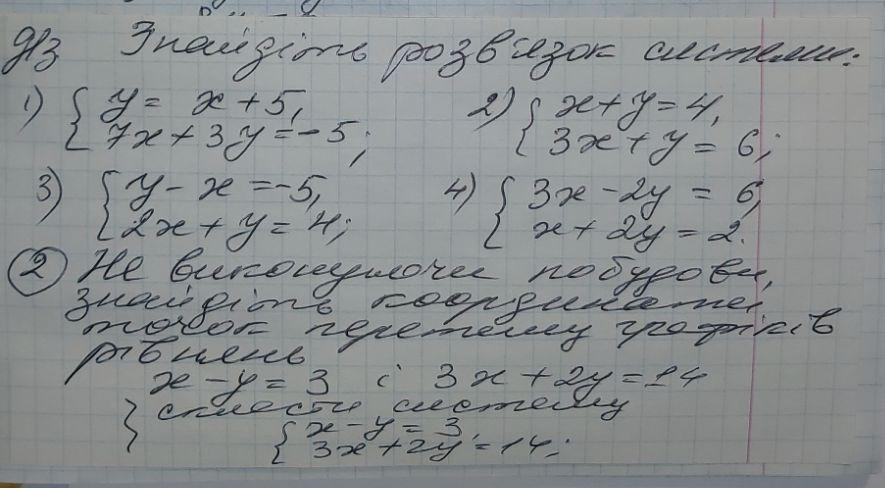 ДЗ Знайдіть розв'язок системи:
1) { y = x + 5, 2) { x + y = 4,
7x + 3y = -5; 3x + y = 6;
3) { y - x = -5, 4) { 3x - 2y = 6,
2x + y = 4; x + 2y = 2.
2 Не виконуючи побудови,
знайдіть координати
точок перетину графіків
рівнянь
x - y = 3 і 3x + 2y = 14
} скласти систему
{ x - y = 3
3x + 2y = 14;